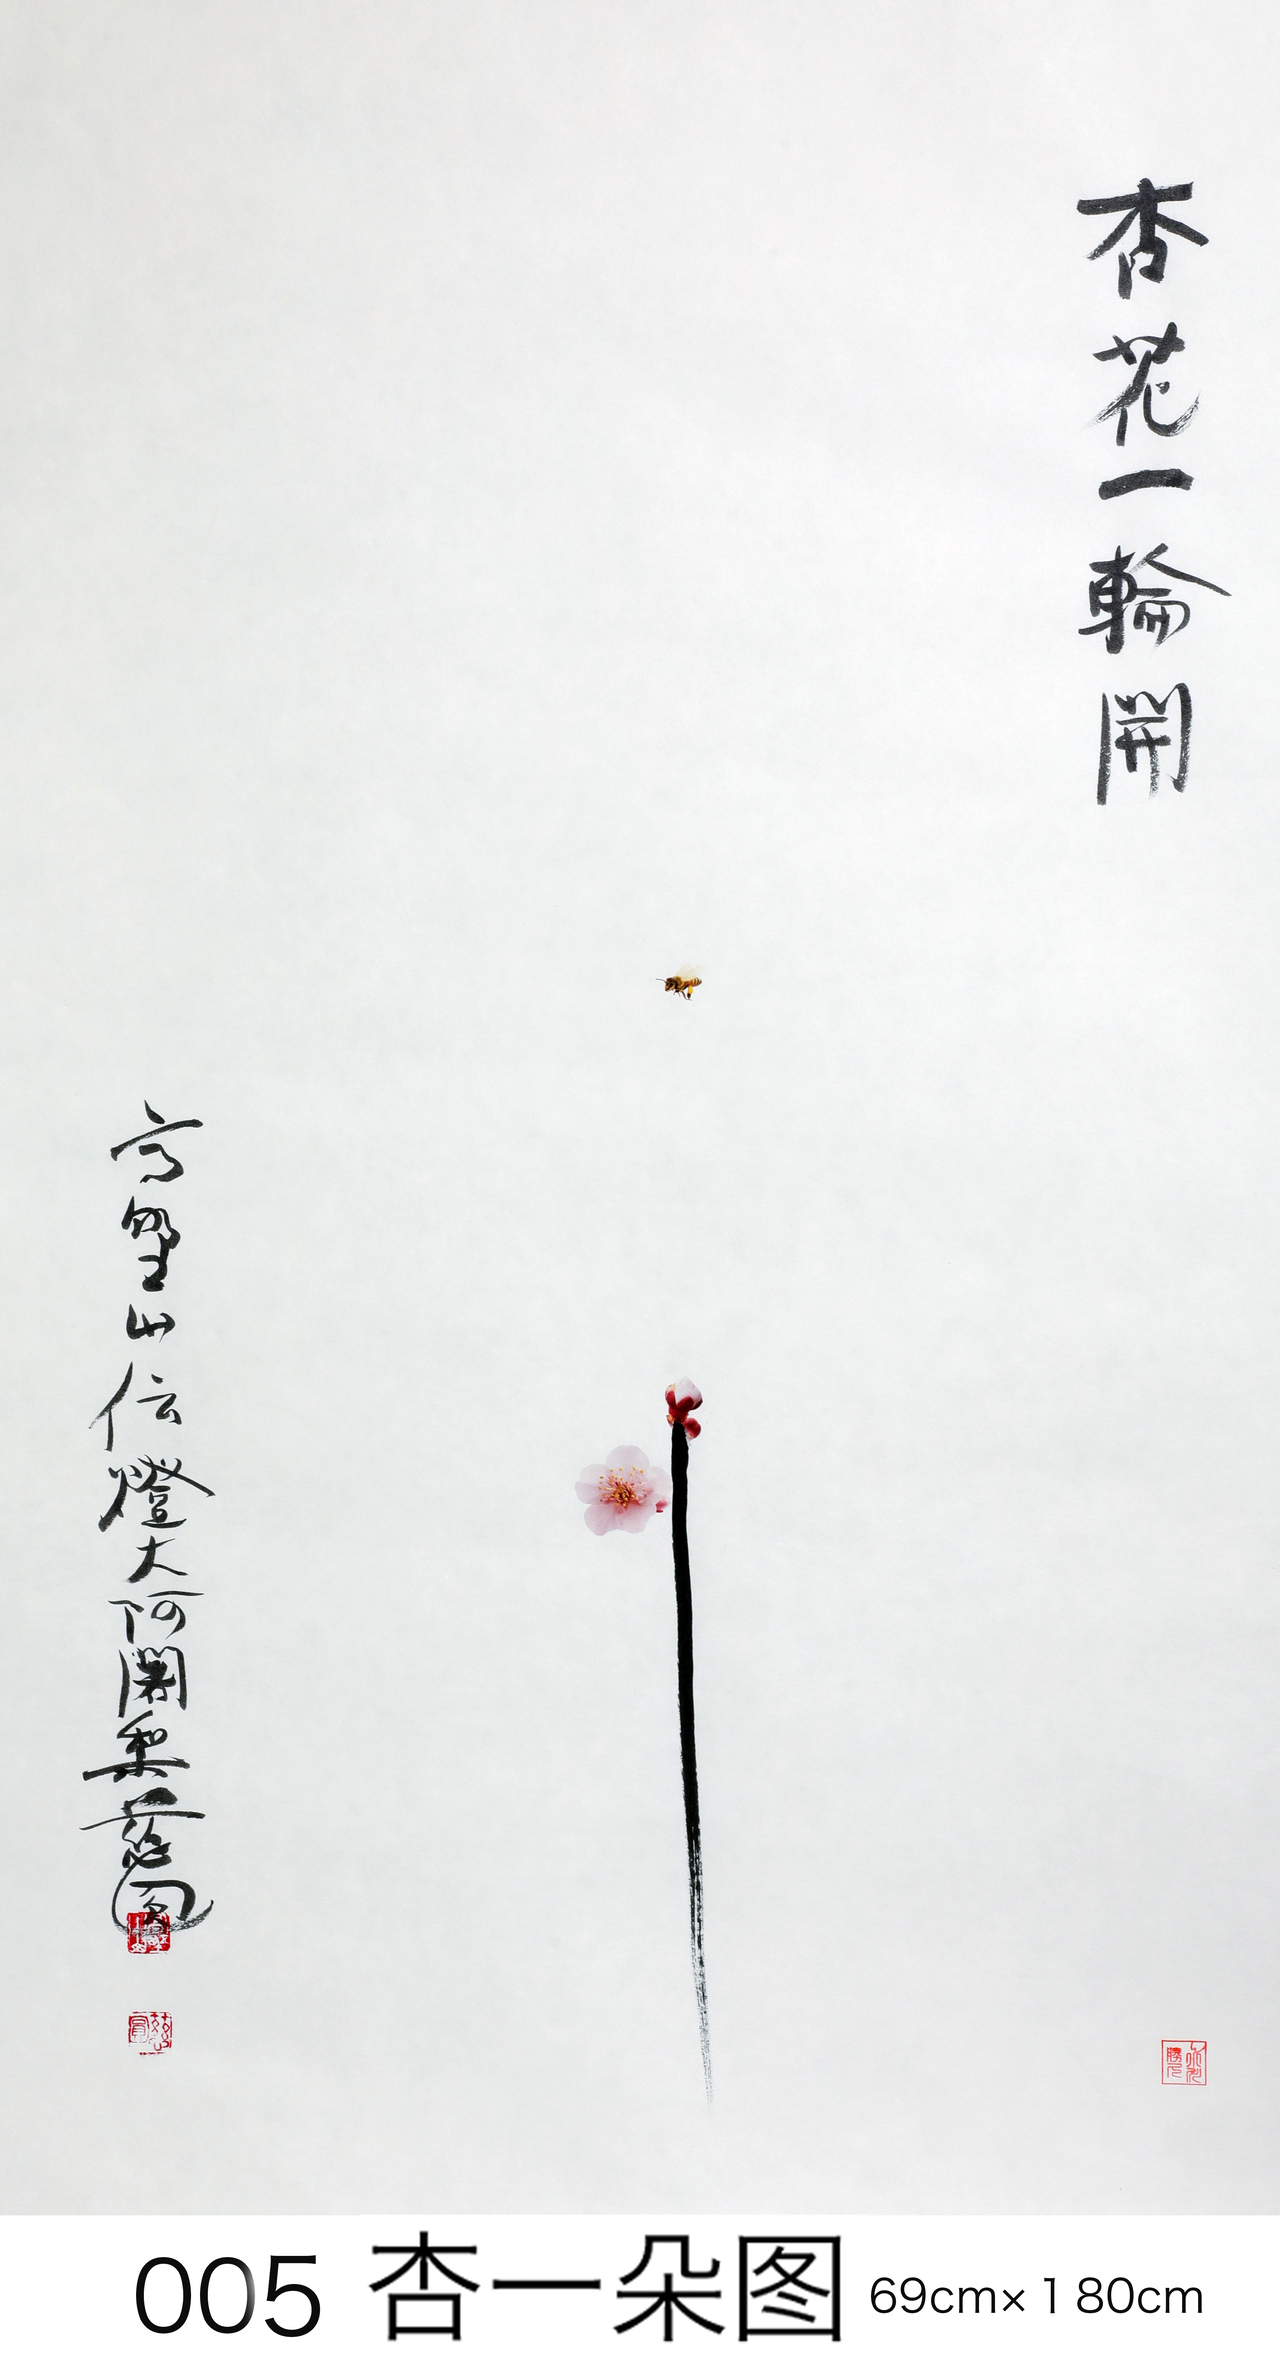 杏花一輪開
高野山伝燈大阿闍梨慈圓
慈圓
005 杏一朵图 69cm×180cm